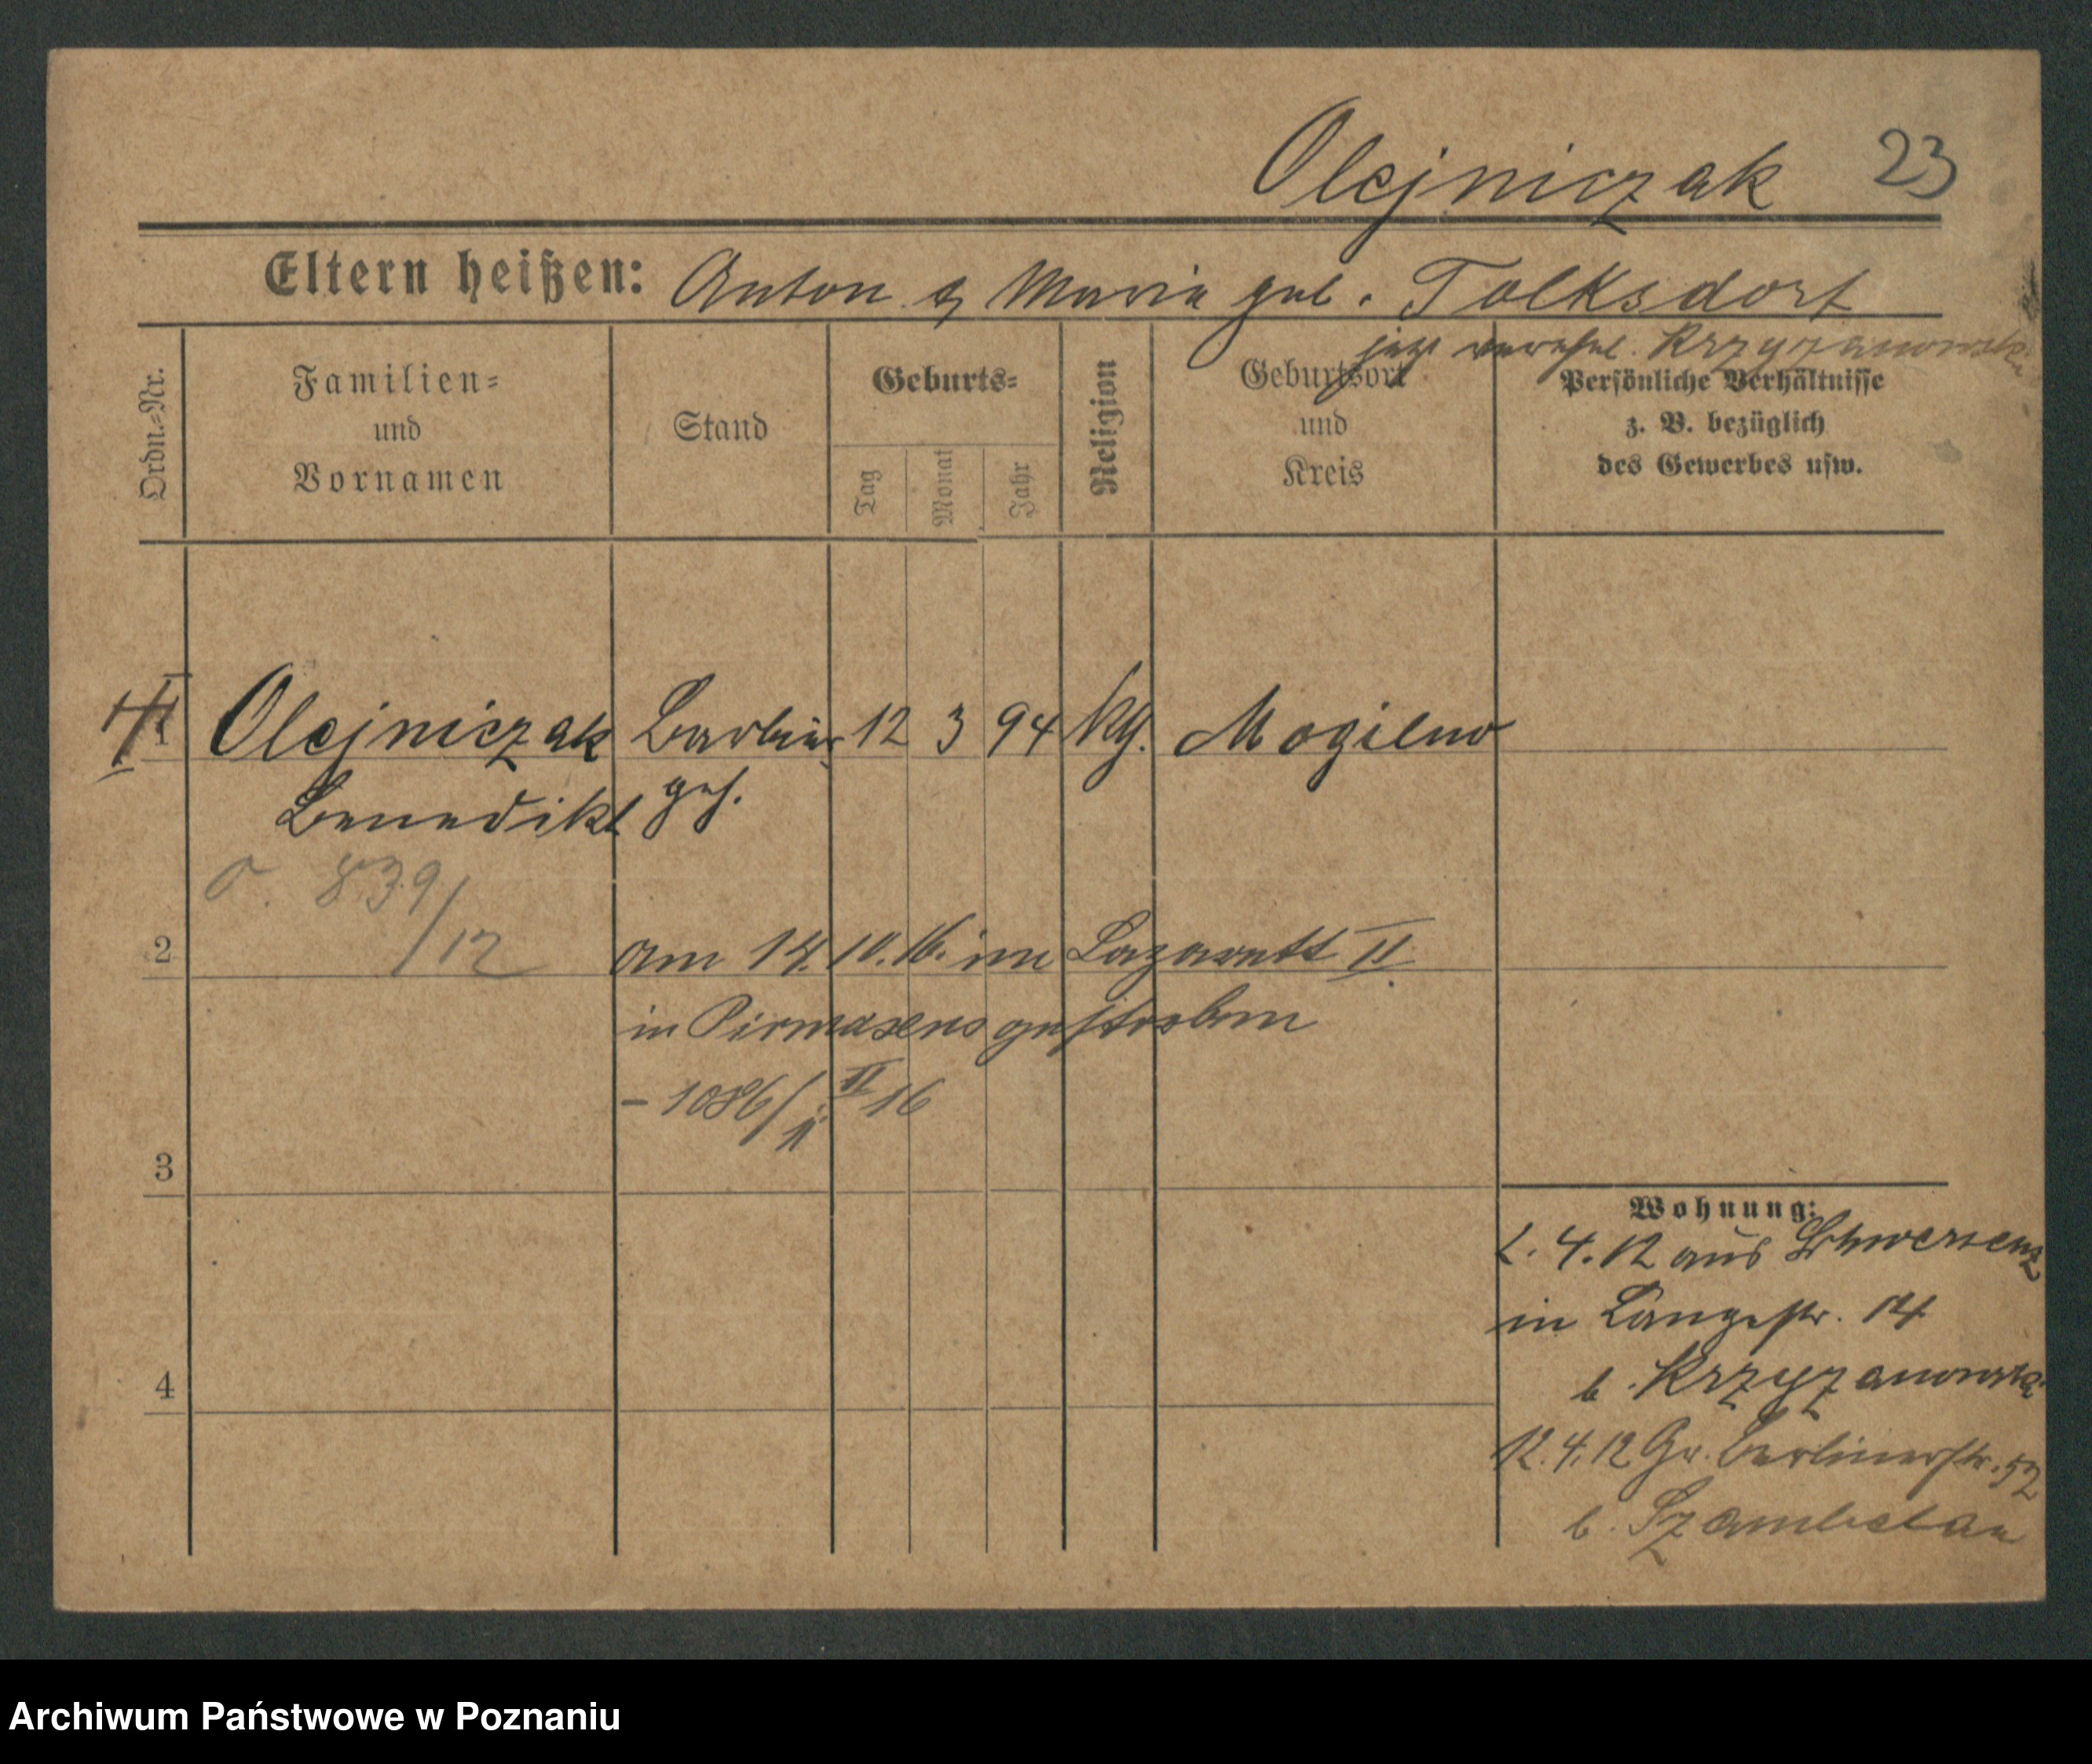 Olejniczak 23
Eltern heißen: Anton & Maria geb. Tolksdorf
jetzt verehel. Krzyzanowska
Ordn.=Nr.
Familien=
und
Vornamen
Stand
Geburts=
Tag
Monat
Jahr
Religion
Geburtsort
und
Kreis
Persönliche Verhältnisse
z. B. bezüglich
des Gewerbes usw.
1 Olejniczak Barbier 12 3 94 kg. Mogilno
Benedikt geh.
O. 839/12
2 am 14.10.16. im Lazarett II
in Pirmasens gestorben
- 1086/11 II 16
3
Wohnung:
2.4.12 aus Schwersenz
in Langestr. 14
b. Krzyzanowska
4
12.4.12 Gr. Berlinerstr. 52
b. Szambelan
Archiwum Państwowe w Poznaniu